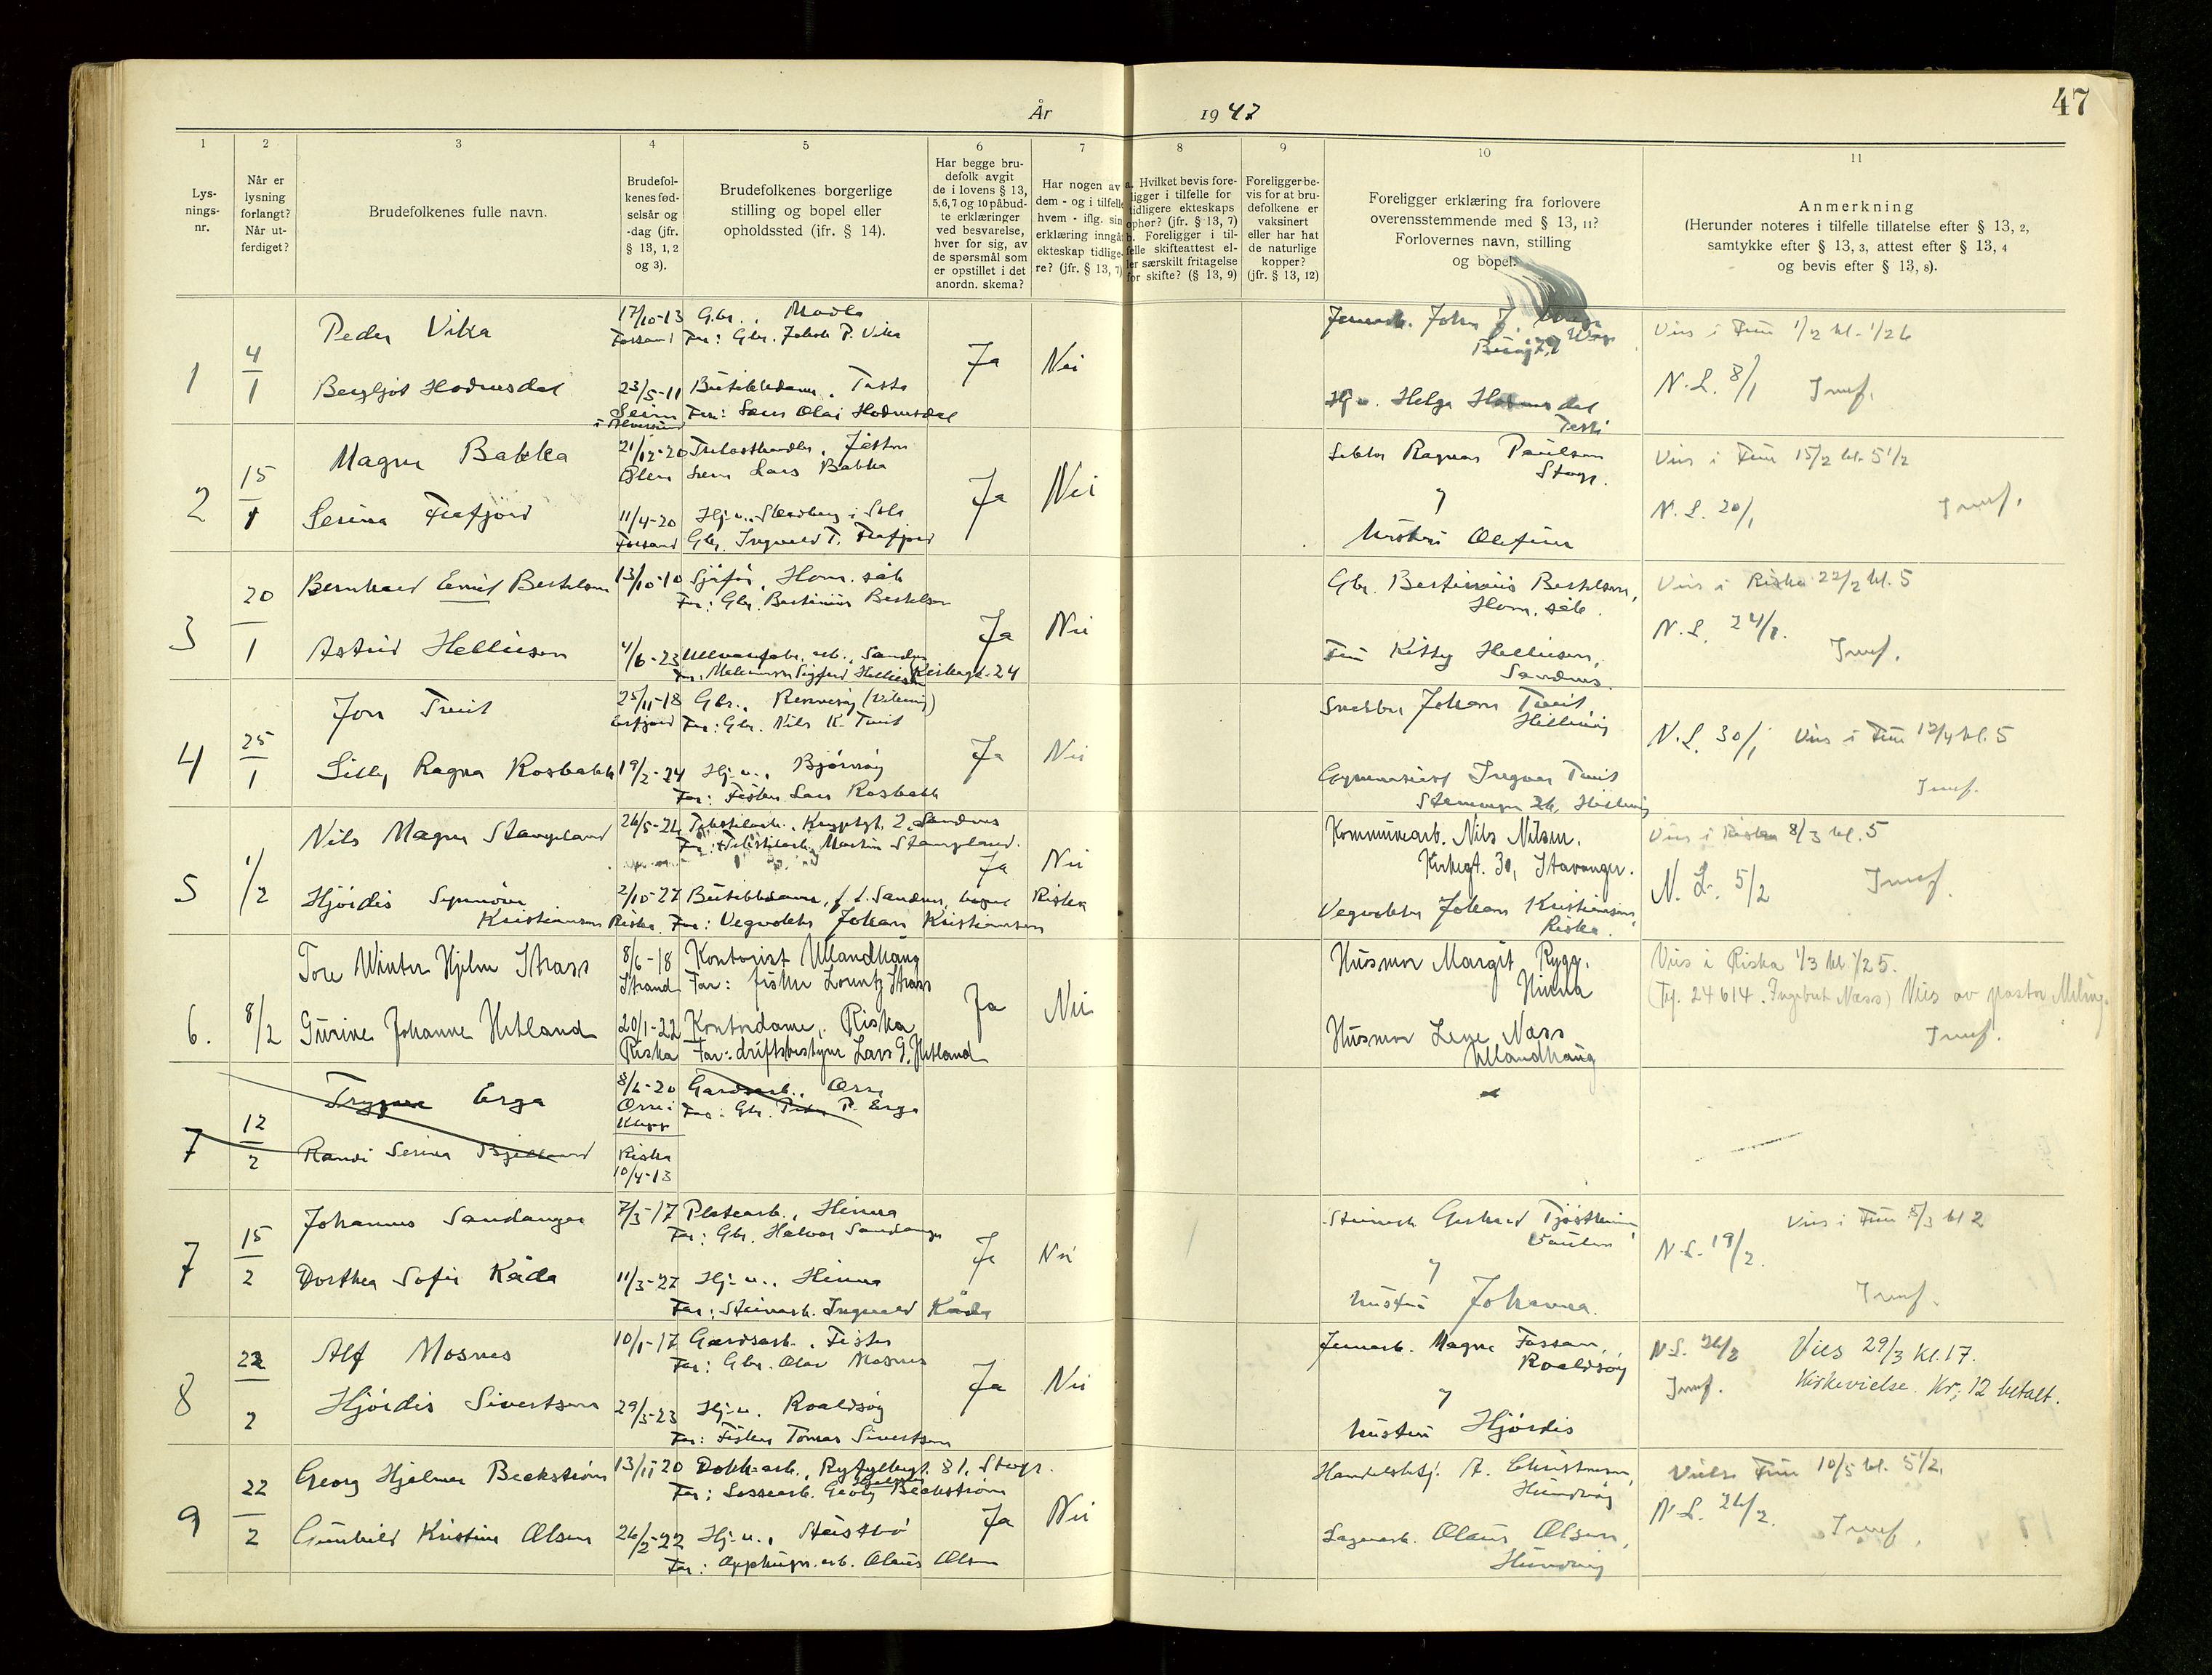 År 1947
47
1
Lys-
nings-
nr.
2
Når er
lysning
forlangt?
Når ut-
ferdiget?
3
Brudefolkenes fulle navn.
4
Brudefol-
kenes fød-
selsår og
-dag (jfr.
§ 13, 1, 2
og 3).
5
Brudefolkenes borgerlige
stilling og bopel eller
opholdssted (jfr. § 14).
6
Har begge bru-
defolk avgit
de i lovens § 13,
5,6,7 og 10 påbud-
te erklæringer
ved besvarelse,
hver for sig, av
de spørsmål som
er opstillet i det
anordn. skema?
7
Har nogen av
dem - og i tilfelle
hvem - iflg. sin
erklæring inngå
ekteskap tidlige-
re? (jfr. § 13, 7)
8
a. Hvilket bevis fore-
ligger i tilfelle for
tidligere ekteskaps
ophør? (jfr. § 13, 7)
b. Foreligger i til-
felle skifteattest el-
ler særskilt fritagelse
for skifte? (§ 13, 9)
9
Foreligger be-
vis for at bru-
defolkene er
vaksinert
eller har hat
de naturlige
kopper?
(jfr. § 13, 12)
10
Foreligger erklæring fra forlovere
overensstemmende med § 13, 11?
Forlovernes navn, stilling
og bopel.
11
Anmerkning
(Herunder noteres i tilfelle tillatelse efter § 13, 2,
samtykke efter § 13, 3, attest efter § 13, 4
og bevis efter § 13, 8).
1
4/1
Peder Vika
17/10-13 Gbr., Madla
Forsand Far: Gbr. Jakob P. Vika
Bergljot Hodnesdal
23/5-11 Butikkdame, Tasta
Seim Far: Hodnesdal
Ja
Nei
Jernarb. John
Hj.v. Helga Hodnesdal
Vies i Frue 1/2 kl. 1/2 6
N.L. 8/1
2
15/1
Magne Bakka
21/12-20 Jåtten
Ølen Lars Bakka
Serina Frafjord
11/4-20 Hj.v., Sola
Forsand Gbr. Ingvald T. Frafjord
Ja
Nei
Ragnar Paulsen
Stvgr.
y
hustru Olefine
Viis i Frue 15/2 kl. 5 1/2
N.L. 20/1
3
20/1
Bernhard Emil Bertelsen
13/10-10 Sjåfør, Hom. såk
Far: Gbr. Bertinius Bertelsen
Astrid Helliesen
4/6-23 Ullvarefabr. arb., Sandnes
Far: Sigfred Helliesen Kirkegt. 24
Ja
Nei
Gbr. Bertinius Bertelsen,
Hom. såk.
Fru Kitty Helliesen,
Sandnes.
Viis i Riska 22/2 kl. 5
N.L. 24/1.
4
25/1
Jon Tveit
25/11-18 Gbr., Rennesøy
Far: Gbr. Nils K. Tveit
Lilly Ragna Rosbakk
19/2-24 Hj.v., Bjørnøy
Far: Fisker Lars Rosbakk
Ja
Nei
Snekker Johan Tveit,
Hillevåg
Gymnasiast Ingvar Tveit
Hillevåg
N.L. 30/1 Viis i Frue 12/4 kl. 5
5
1/2
Nils Magne Stangeland
26/5-21 Tekstilarb., 2, Sandnes
Far: Tekstilarb. Martin Stangeland.
Hjørdis Synnøve
Kristiansen
2/10-27 Butikkdame, f.t. Sandnes, bopel Riska
Riska. Far: Vegvokter Johan Kristiansen
Ja
Nei
Kommunearb. Nils Nilsen.
Kirkegt. 30, Stavanger.
Vegvokter Johan Kristiansen,
Riska.
Viis i Riska 8/3 kl. 5
N.L. 5/2
6.
8/2
Tore Winter Hjelm Strass
8/6-18 Kontorist Ullandhaug
Strand Far: fisker Lorentz Strass
Gurine Johanne Hetland
20/1-22 Kontordame, Riska
Riska Far: driftsbestyrer Lars G. Hetland
Ja
Nei
Husmor Margit Rygg.
Hinna
Husmor Lene Næss
Ullandhaug
Viis i Riska 1/3 kl. 1/2 5.
(Tlf. 24614. Ingebret Næss) Viis av pastor Meling.
7
12/2
Trygve Erga
8/6-20 Gardsarb., Orre
Orre i Far: Gbr. Peder P. Erga
Klepp
Randi Serina Bjelland
Riska
10/4-13
7
15/2
Johannes Sandanger
7/3-17 Platearb., Hinna
Far: Gbr. Halvor Sandanger
Dorthea Sofie Kåda
11/3-27 Hj.v., Hinna
Far: Steinarb. Ingvald Kåda
Ja
Nei
Steinarb. Gerhard Tjøstheim,
Vaulen
y
hustru Johanna.
Viis i Frue 8/3 kl 2
N.L. 19/2.
8
22/2
Alf Mosnes
10/1-17 Gardsarb., Fister
Far: Gbr. Olav Mosnes
Hjørdis Sivertsen
29/3-23 Hj.v. Roaldsøy
Far: Fisker Tomas Sivertsen
Ja
Nei
Jernarb. Magne Fossan,
Roaldsøy
y
hustru Hjørdis
N.L. 26/2 Vies 29/3 kl. 17.
Kirkevielse. Kr. 12 betalt.
9
22/2
Georg Hjelmer Beckstrøm
13/11-20 Dokkarb., Ryfylkegt. 81, Stvgr.
Far: Lossearb. Georg Beckstrøm
Gunhild Kristine Olsen
26/2-22 Hj.v., Austbø
Far: arb. Olaus Olsen
Ja
Nei
Handelsbetj. A. Christensen,
Hundvåg
Lagerarb. Olaus Olsen,
Hundvåg
Viels. Frue 10/5 kl. 5 1/2.
N.L. 26/2.